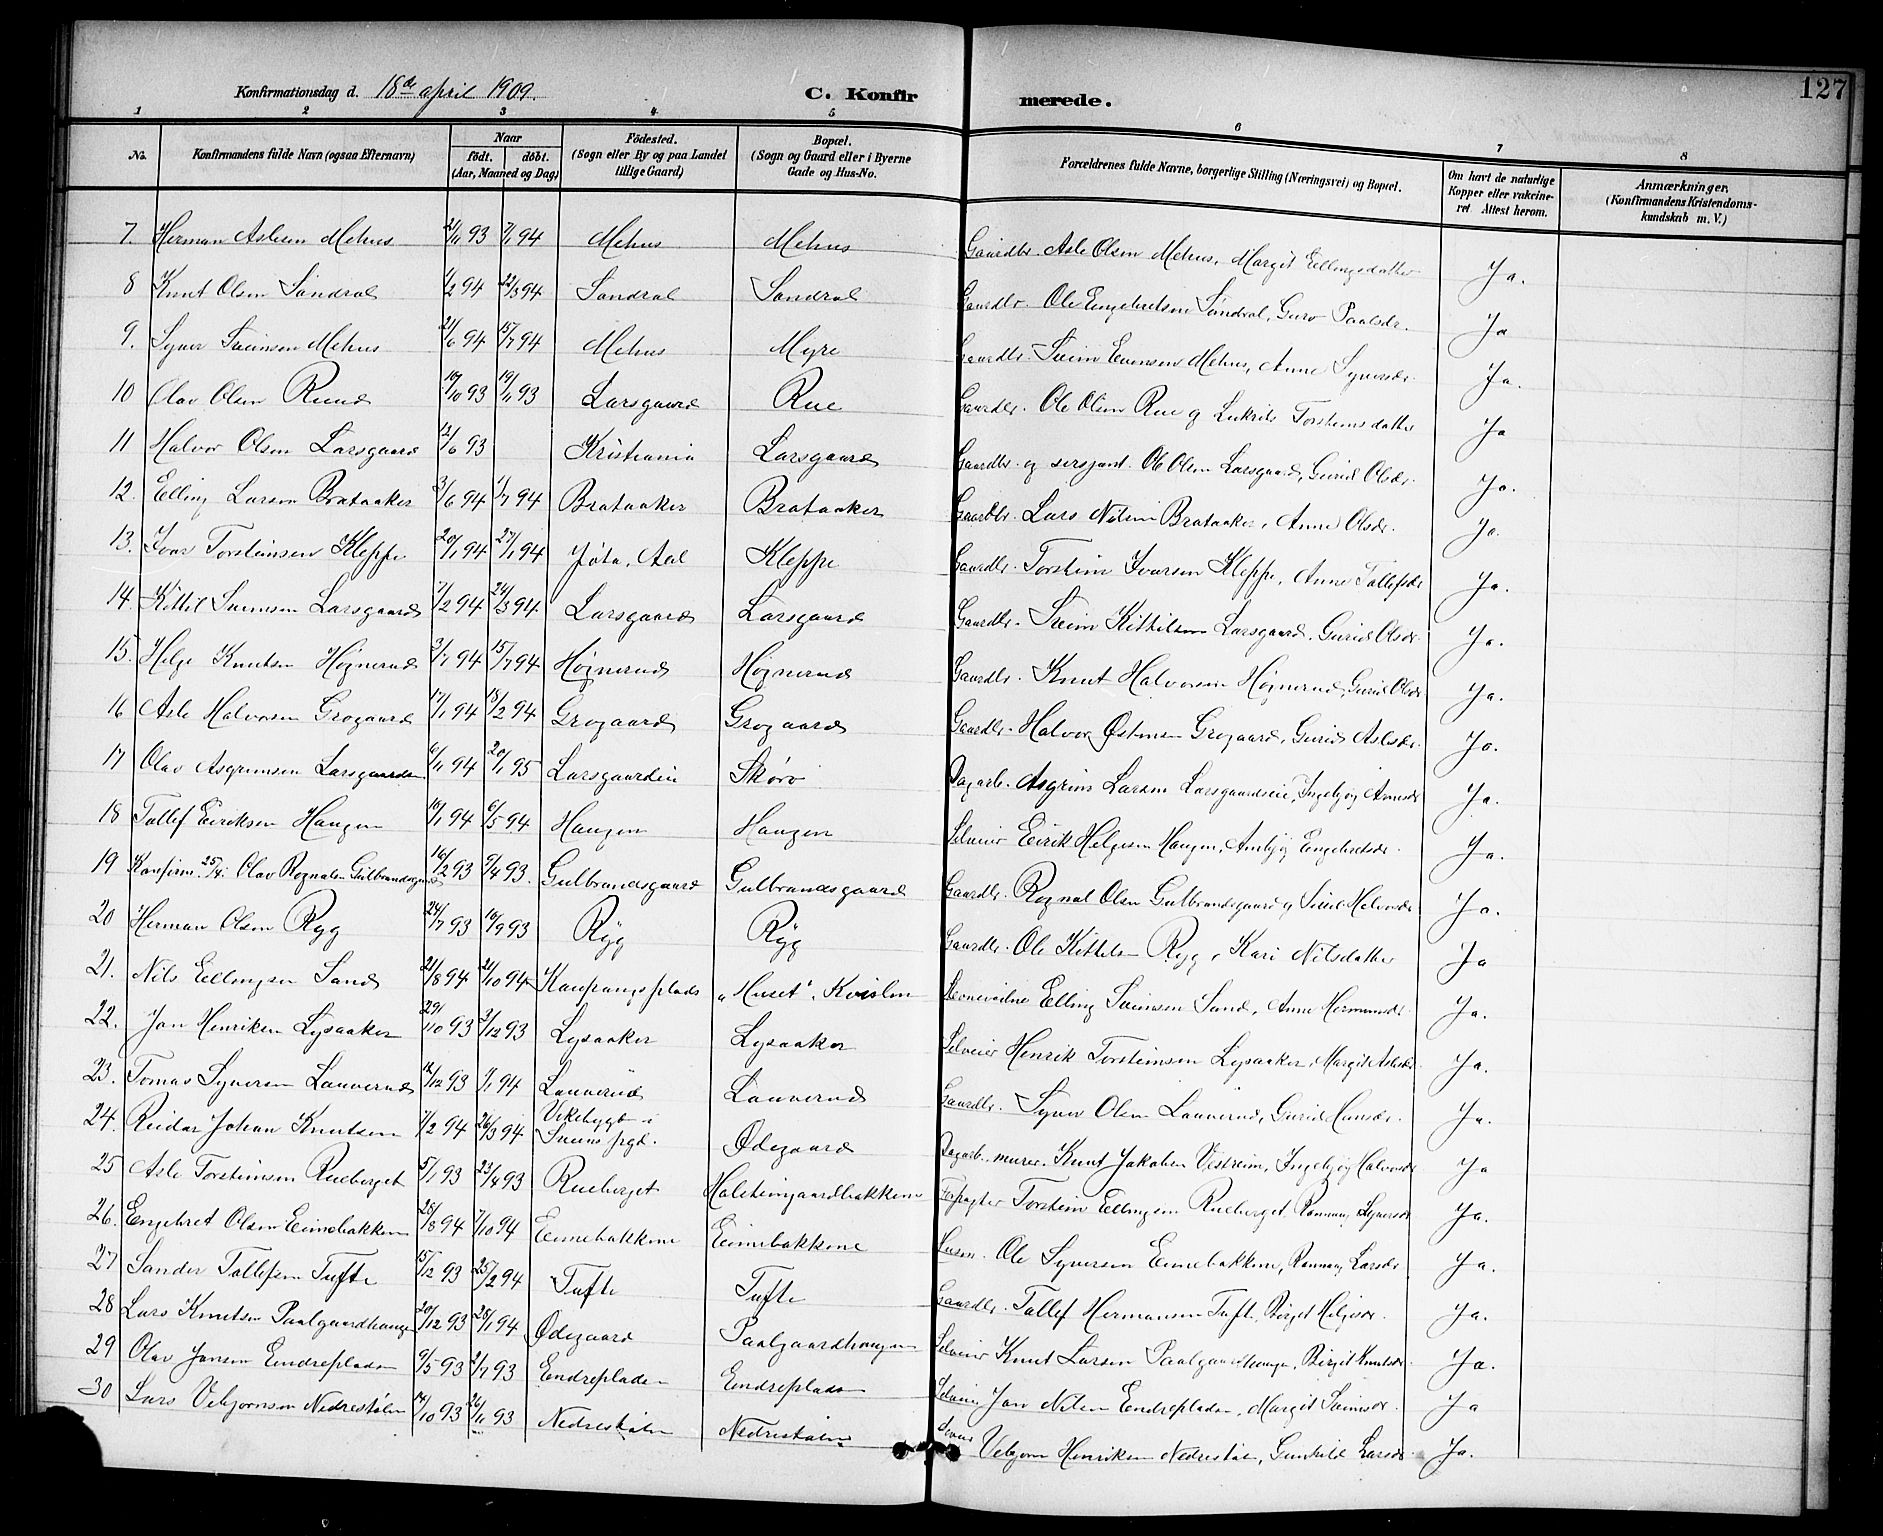 127
Konfirmationsdag d. 18de april 1909.
C. Konfirmerede.
1 2 3 4 5 6 7 8
No. Konfirmandens fulde Navn (ogsaa Efternavn) Naar født. døbt. (Aar, Maaned og Dag) Fødested. (Sogn eller By og paa Landet tillige Gaard) Bopæl. (Sogn og Gaard eller i Byerne Gade og Hus-No. Forældrenes fulde Navne, borgerlige Stilling (Næringsvei) og Bopæl. Om havt de naturlige Kopper eller vakcineret Attest herom. Anmærkninger. (Konfirmandens Kristendomskundskab m. V.)
7. Herman Aslesen Mehus 21/11 93 7/1 94 Mehus Mehus Gaardbr. Asle Olsen Mehus, Margit Ellingsdatter Ja.
8 Knut Olsen Søndral 1/2 94 22/3 94 Søndral Søndral Gaardbr. Ole Engebretsen Søndral, Guro Paalsdr. Ja
9. Syver Sveinsen Mehus 21/6 94 15/7 94 Mehus Myre Gaardbr. Svein Evensen Mehus, Anne Syversdr. Ja.
10 Olav Olsen Ruud 10/10 93 19/11 93 Larsgaard Rue Gaardbr. Ole Olsen Rue og Lukrids Torsteinsdatter Ja
11 Halvor Olsen Larsgaard 12/6 93 Kristiania Larsgaard Gaardbr. og sersjant. Ole Olsen Larsgaard, Gurid Olsdr. Ja.
12. Elling Larsen Brataaker 3/6 94 1/7 94 Brataaker Brataaker Gaardbr. Lars Nilsen Brataaker, Anne Olsdr. Ja.
13. Ivar Torsteinsen Kleppe 20/1 94 27/1 94 Jøta, Aal Kleppe Gaardbr. Torstein Ivarsen Kleppe, Anne Tollefsdr Ja.
14. Kittil Sveinsen Larsgaard 7/2 94 24/3 94 Larsgaard Larsgaard Gaardbr. Svein Kittilsen Larsgaard, Gurid Olsdr. Ja.
15. Helge Knutsen Høgnerud 3/7 94 15/7 94 Høgnerud Høgnerud Gaardbr. Knut Halvorsen Høgnerud, Gurid Olsdr Ja.
16 Asle Halvorsen Grøgaard 17/1 94 18/2 94 Grøgaard Grøgaard Gaardbr. Halvor Østensen Grøgaard, Gurid Aslesdr. Ja.
17 Olav Asgrimsen Larsgaardseie 6/11 94 20/1 95 Larsgaardeie Skøro Dagarb. Asgrim Larsen Larsgaardseie, Ingebjørg Arnesdr Ja.
18 Tollef Eiriksen Haugen 10/1 94 6/5 94 Haugen Haugen Selveier Eirik Helgesen Haugen, Ambjørg Engebretsdr. Ja.
19 Konfirm. 25/4. Olav Rognalsen Gulbrandsgaard 16/2 93 9/4 93. Gulbrandsgaard Gulbrandsgaard Gaardbr. Rognal Olsen Gulbrandsgaard og Sirid Halvorsdr Ja.
20 Herman Olsen Ryg 24/7 93 10/9 93 Ryg Ryg Gaardbr. Ole Kittelsen Ryg, Kari Nilsdatter Ja
21. Nils Ellingsen Sand 21/8 94 21/10 94 Kaupangsplads "Huset", Kvislen Elling Sveinsen Sand, Anne Hermansdr. Ja.
22. Jan Henriksen Lysaaker 29/10 93 3/12 93 Lysaaker Lysaaker Selveier Henrik Torsteinsen Lysaaker, Margit Aslesdr. Ja.
23. Tomas Syversen Lauverud 12/12 93 7/1 94 Lauverud Lauverud Gaardbr. Syver Olsen Lauverud, Gurid Ja.
24. Reidar Johan Knutsen 7/2 94 26/3 94 Vikebygt i Sveens prgd. Ødegaard Dagarb. murer. Knut Jakobsen Vestreim, Ingebjørg Halvorsdr Ja
25 Asle Torsteinsen Rueberget 5/1 93 23/4 93 Rueberget Halsteingaardbakkene Forpagter Torstein Ellingsen Rueberget, Rannaug Syversdr Ja.
26. Engebret Olsen Eimebakken 28/8 94 7/10 94 Eimebakkene Eimebakkene Husm. Ole Syversen Eimebakkene, Rannaug Larsdr. Ja.
27 Sander Tollefsen Tufte 15/12 93 25/2 94 Tufte Tufte Gaardbr. Tollef Hermansen Tufte, Birget Helgesdr. Ja.
28 Lars Knutsen Paalgaardhaugen 20/12 93 28/1 94 Ødegaard Paalgaardhaugen Selveier Knut Larsen Paalgaardhaugen, Birgit Knutsdr. Ja.
29 Olav Jansen Endrepladsen 9/5 93 2/7 93 Endrepladsen Endrepladsen Selveier Jan Nilsen Endrepladsen, Margit Sveinsdr. Ja
30 Lars Vebjørnsen Nedrestølen 14/10 93 26/11 93 Nedrestølen Nedrestølen Selveier Vebjørn Henriksen Nedrestølen, Gunhild Larsdr. Ja.